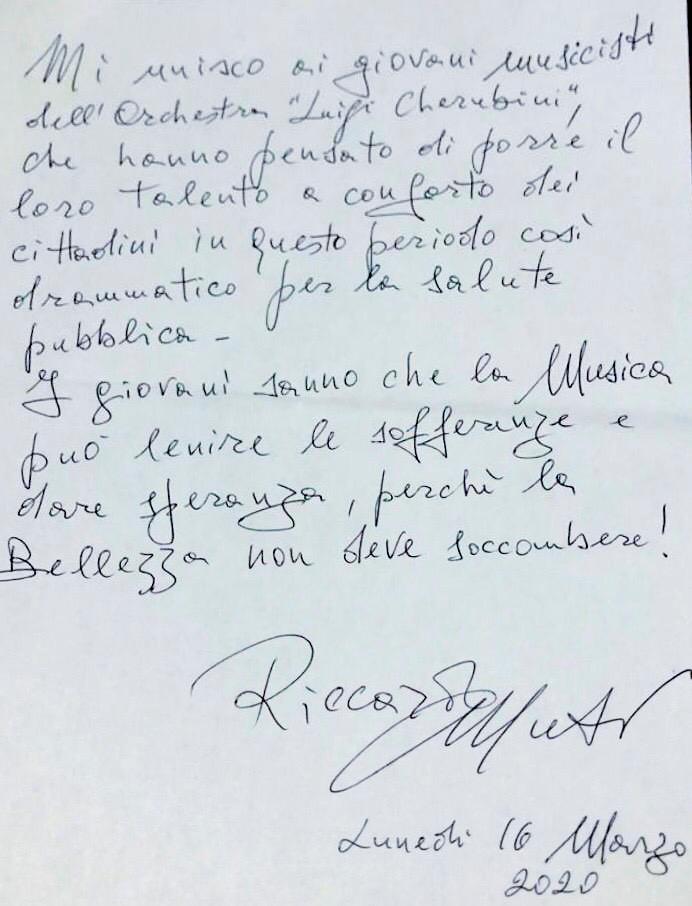 Mi unisco ai giovani musicisti
dell'Orchestra "Luigi Cherubini",
che hanno pensato di porre il
loro talento a conforto dei
cittadini in questo periodo così
drammatico per la salute
pubblica -
I giovani sanno che la Musica
può lenire le sofferenze e
dare speranza, perchè la
Bellezza non deve soccombere!
Riccardo Muti
Lunedì 16 Marzo
2020